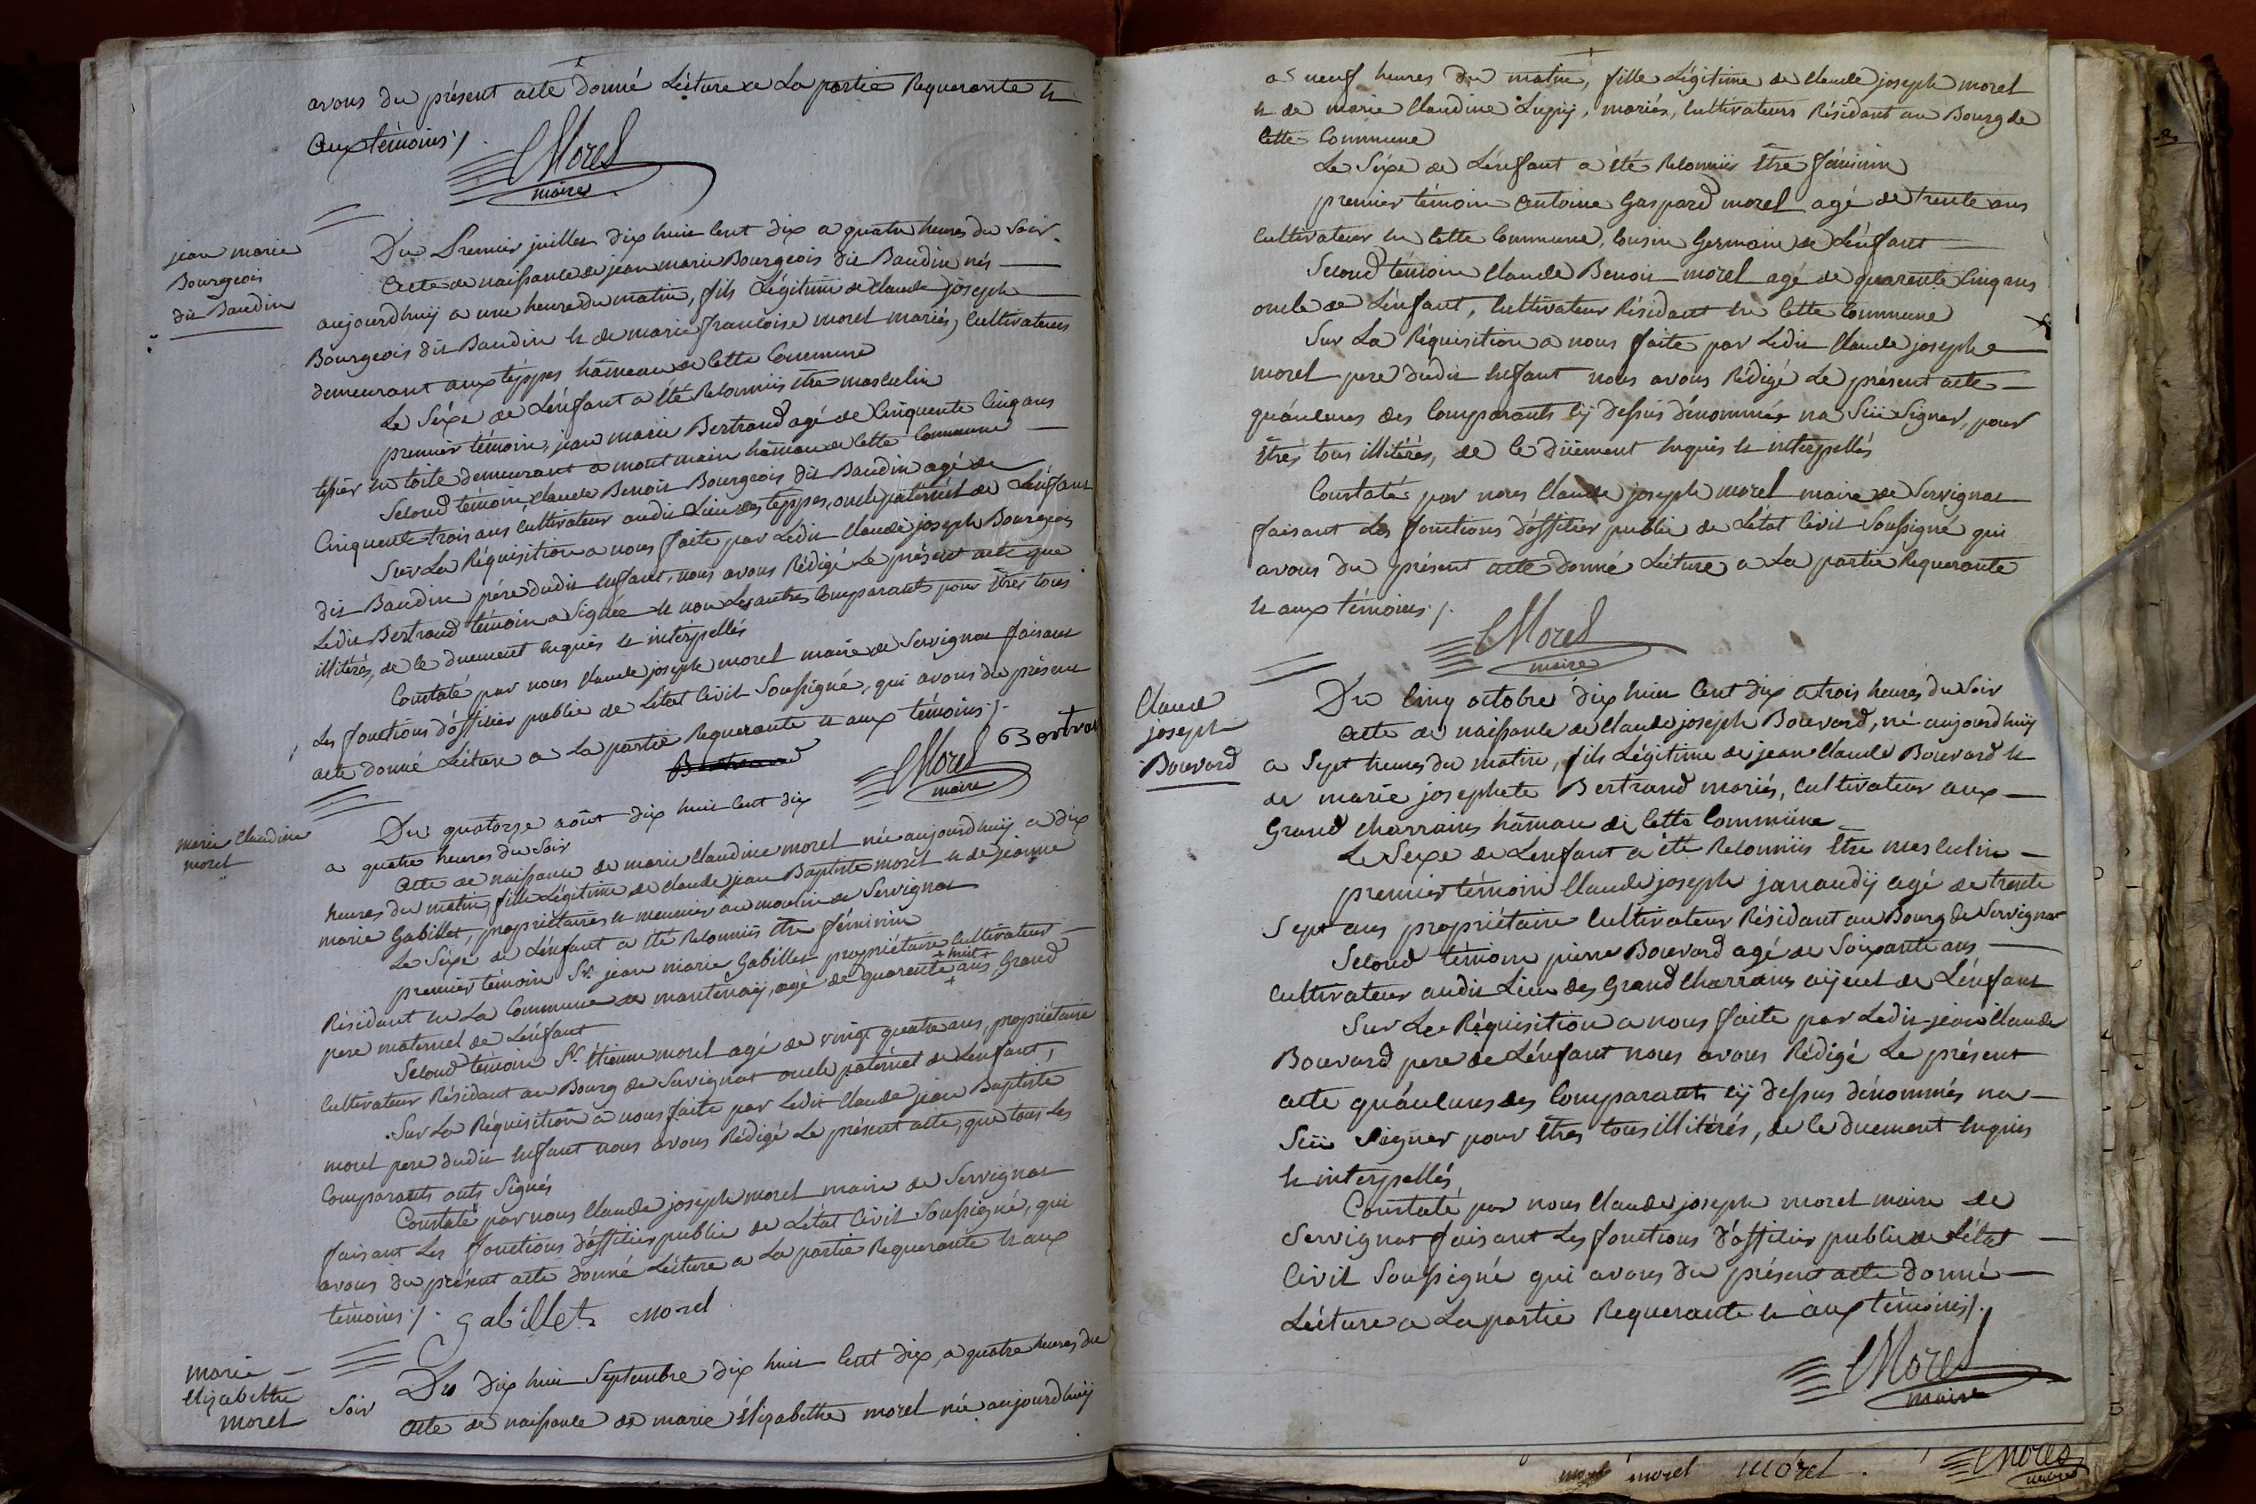 avons du présent acte donné Lécture a La partie Requerante et
aux témoins ./.
CMorel
maire
jean marie
Bourgeois
dit Baudin
Du Premier juillet dix huit Cent dix a quatre heures du Soir
Acte de naissance de jean marie Bourgeois dit Baudin nés
aujourdhuÿ a une heure du matin, fils Légitime de Claude joseph
Bourgeois dit Baudin et de marie françoise morel mariés, Cultivateurs
demeurant aux teÿppes hâmeau de Cette Commune
Le Séxe de L'énfant a été Reconnüs être masculin
premier témoin, jean marie Bertrand agé de Cinquente Cinq ans
tissier en toile demeurant a montmain hâmeau de Cette Commune
Second témoin, Claude Benoit Bourgeois dit Baudin agé de
Cinquente trois ans, Cultivateur audit Lieu des teÿppes, oncle paternél de L'énfant
Sur La Réquisition a nous faite par Ledit Claude joseph Bourgeois
dit Baudin pére dudit Enfant, nous avons Rédigé Le présent acte que
Ledit Bertrand témoin a Signée et non Les autres Comparants pour êtres tous
illitérés, de Ce duement Enquis et interpellés
Constaté par nous Claude joseph morel maire de Servignat faisant
Les fonctions d'officier public de L'état Civil Soussigné, qui avons du présent
acte donné Lécture a La partie Requerante et aux témoins ./.
Bertrand
CMorel
maire
Bertran
marie Claudine
morel
Du quatorze aoüt dix huit Cent dix
a quatre heures du Soir
Acte de naissance de marie Claudine morel née aujourdhuÿ a dix
heures du matin, fille Légitime de Claude jean Baptiste morel et de jeanne
marie Gabillet, propriétaires et meunier au moulin de Servignat
Le Séxe de L'énfant a été Reconnüs être féminin
premier témoin Sr. jean marie Gabillet propriétaire Cultivateur
+ huit +
Résidant en La Commune de mantenaÿ, agé de quarente + ans, Grand
pere maternél de L'énfant
Second témoin Sr. étienne morel agé de vingt quatre ans, propriétaire
Cultivateur Résidant au Bourg de Servignat oncle paternél de L'énfant,
Sur La Réquisition a nous faite par Ledit Claude jean Baptiste
morel pere dudit Enfant nous avons Rédigé Le présent acte, que tous Les
Comparants onts Signés
Constaté par nous Claude joseph morel maire de Servignat
faisant Les fonctions d'officier public de L'état Civil Soussigné, qui
avons du présent acte donné Lécture a La partie Requerante et aux
témoins ./. Gabillet morel
marie
Elizabethe
morel
Du dix huit Septembre dix huit Cent dix, a quatre heures du
Soir
Acte de naissance de marie élizabethe morel née aujourdhuÿ
a neuf heures du matin, fille Légitime de Claude joseph morel
et de marie Claudine Lupÿ, mariés, Cultivateurs Résidant au Bourg de
Cette Commune
Le Séxe de L'énfant a été Reconnüs être féminin
premier témoin Antoine Gaspard morel agé de trente ans
Cultivateur en Cette Commune, Cousin Germain de L'énfant
Second témoin Claude Benoit morel agé de quarente Cinq ans
oncle de L'énfant, Cultivateur Résidant en Cette Commune
Sur La Réquisition a nous faite par Ledit Claude joseph
morel pere dudit Enfant nous avons Rédigé Le présent acte
qu'áucuns des Comparants cÿ dessus dénommés na Süe Signer, pour
êtrés tous illitérés, de Ce düement Enquis et interpellés
Constaté par nous Claude joseph morel maire de Servignat
faisant Les fonctions d'officier public de L'état Civil Soussigné qui
avons du présent acte donné Lécture a La partie Requerante
et aux témoins ./.
CMorel
maire
Claude
joseph
Bouvard
Du Cinq octobre dix huit Cent dix a trois heures du Soir
Acte de naissance de Claude joseph Bouvard, né aujourdhuÿ
a Sept heures du matin, fils Légitime de jean Claude Bouvard et
de marie josephete Bertrand mariés, Cultivateur aux
Grand Charrains hâmau de Cette Commune
Le Sexe de L'enfant a été Reconnüs être masculin
premier témoin Claude joseph janaudÿ agé de trente
Sept ans propriétaire Cultivateur Résidant au Bourg de Servignat
Second témoin pierre Bouvard agé de Soixante ans
Cultivateur audit Lieu des Grand Charrains aÿeul de L'énfant
Sur La Réquisition a nous faite par Ledit jean Claude
Bouvard pere de L'énfant nous avons Rédigé Le présent
acte qu'áucuns des Comparants cÿ dessus dénommés na
Süe Signer pour êtres tous illitérés, de Ce duement Enquis
et interpellés
Constaté par nous Claude joseph morel maire de
Servignat faisant Les fonctions d'officier public de L'état
Civil Soussigné qui avons du présent acte donné
Lécture a La partie Requerante et aux témoins ./.
CMorel
maire
morel morel CMorel
maire